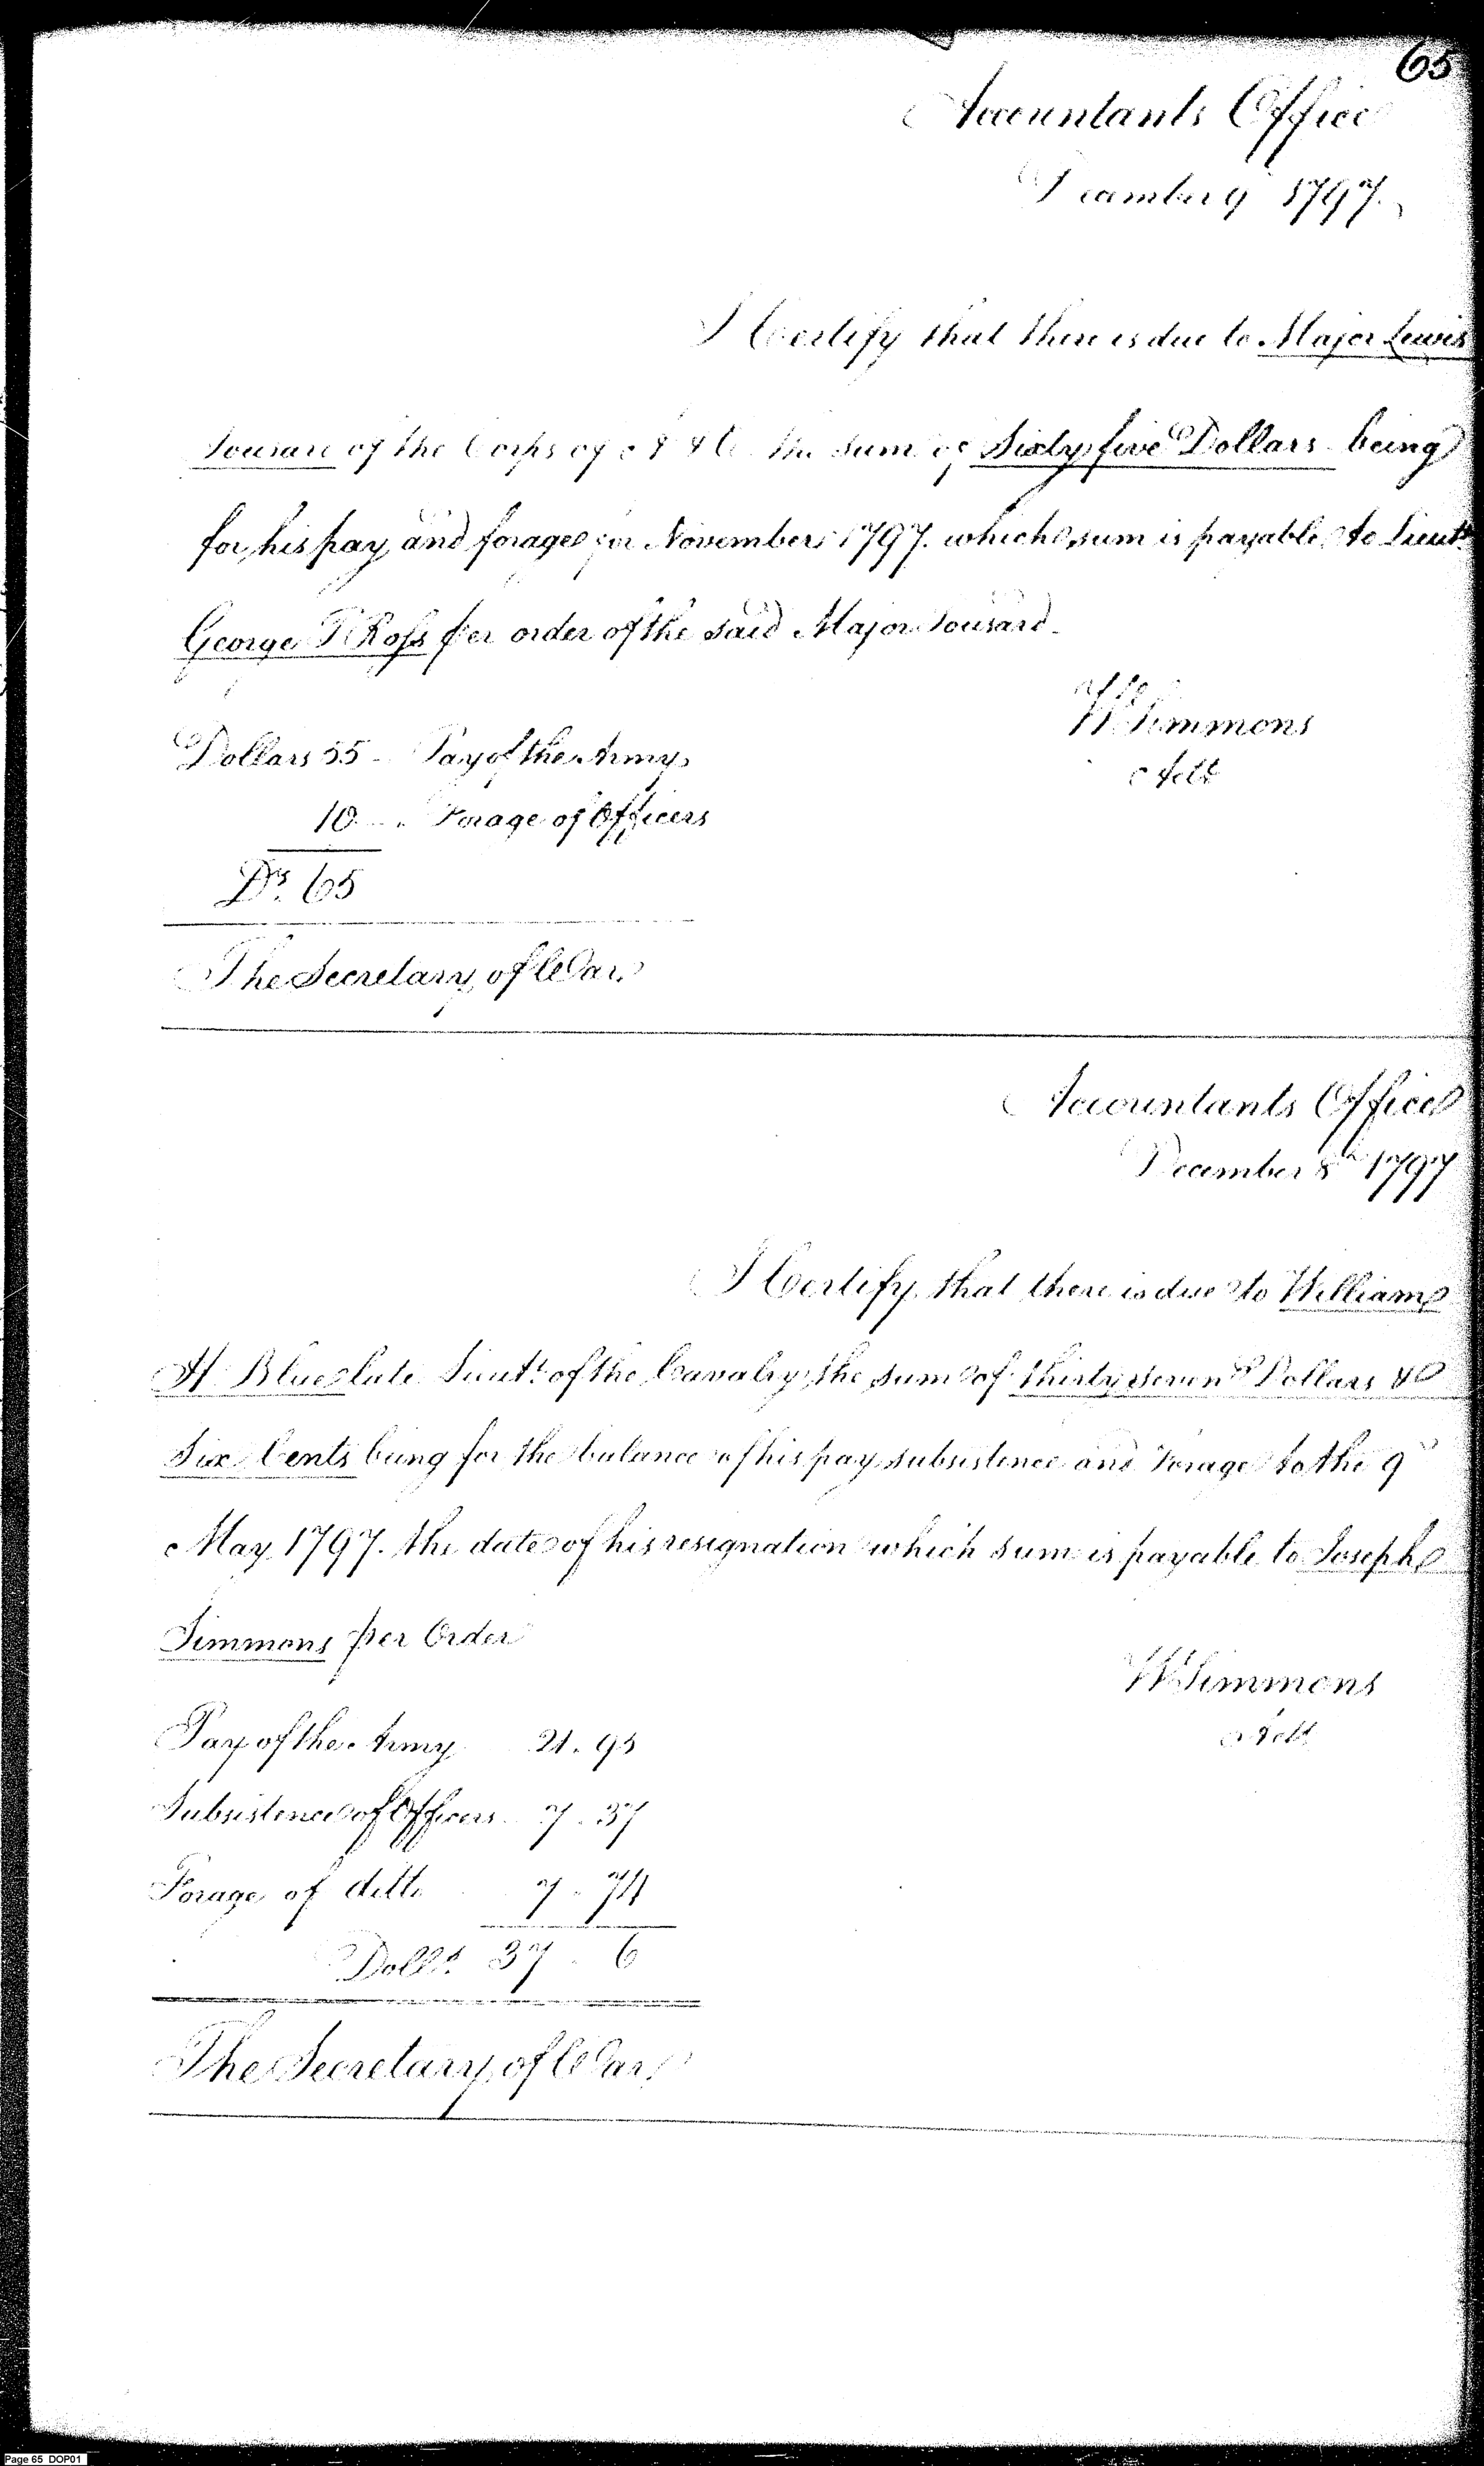 65
Accountants Office
December 9 1797.
I Certify that there is due to Major Lewis
Tousard of the Corps of A & E the sum of Sixty five Dollars being
for his pay and forage for November 1797. which sum is payable to Lieut.
George T Ross per order of the said Major Tousard
W Simmons
Acct
Dollars 55 - Pay of the Army
10 - Forage of Officers
Ds. 65
The Secretary of War
Accountants Office
December 8th 1797
I Certify that there is due to William
A Blue late Lieut. of the Cavalry the sum of thirty seven Dollars &
Six Cents being for the balance of his pay subsistence and Forage to the 9
May 1797. the date of his resignation which sum is payable to Joseph
Simmons per Order
W Simmons
Acct
Pay of the Army 21. 95
Subsistence of Officers 7. 37
Forage of ditto 7. 74
Dolls. 37. 6
The Secretary of War
Page 65 DOP01